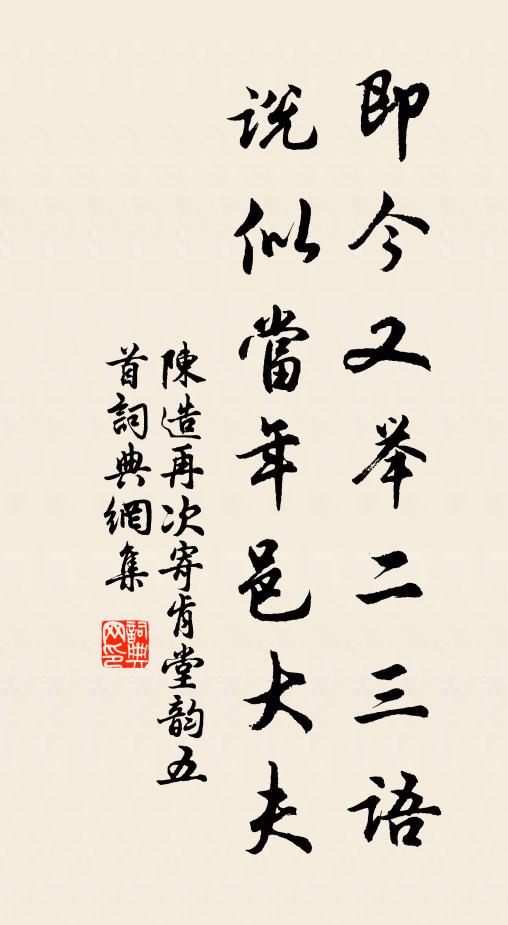 即今又举二三語
説似當年邑大夫
陳造再次寄肯堂韵五
首詞典網集
詞典
网印